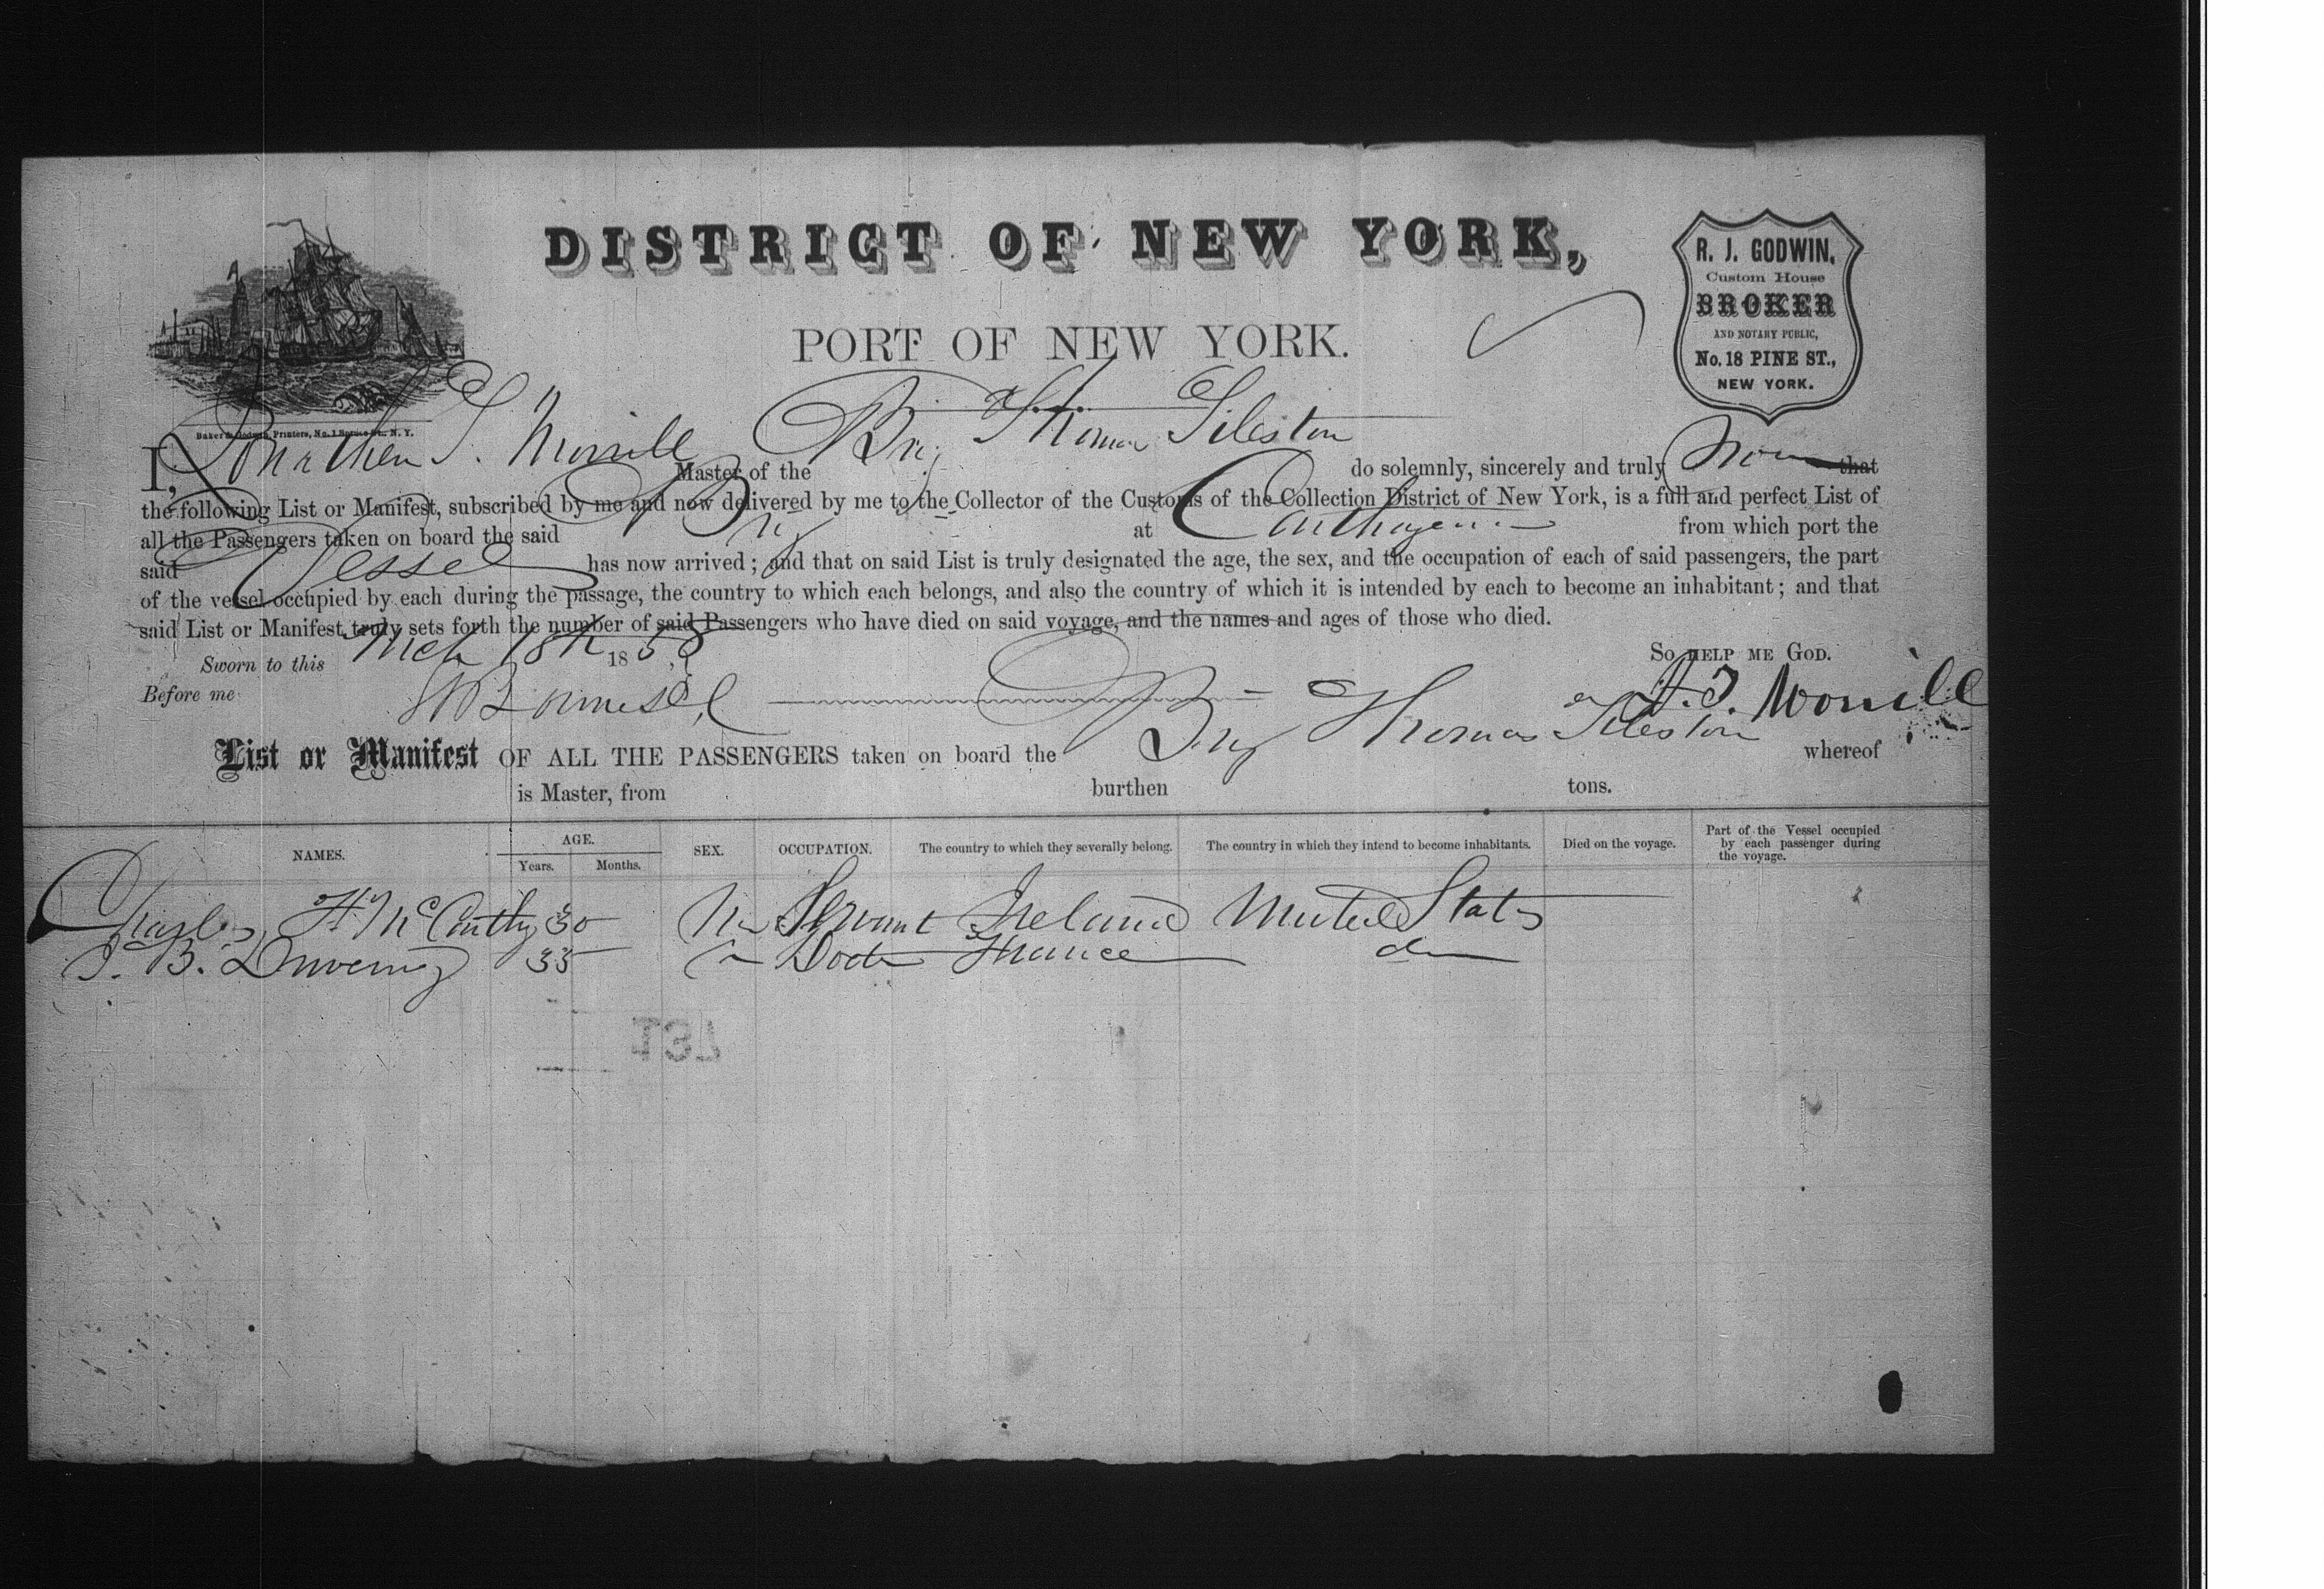 DISTRICT OF NEW YORK,
PORT OF NEW YORK.
R. J. GODWIN,
Custom House
BROKER
AND NOTARY PUBLIC,
No. 18 PINE ST.,
NEW YORK.
Baker & Godwin, Printers, No. 1 Spruce St., N. Y.
I, Jonathan T. Morrill Master of the Brig Thomas Tileston do solemnly, sincerely and truly that
the following List or Manifest, subscribed by me and now delivered by me to the Collector of the Customs of the Collection District of New York, is a full and perfect List of
all the Passengers taken on board the said Brig at Carthagena from which port the
said Vessel has now arrived ; and that on said List is truly designated the age, the sex, and the occupation of each of said passengers, the part
of the vessel occupied by each during the passage, the country to which each belongs, and also the country of which it is intended by each to become an inhabitant ; and that
said List or Manifest truly sets forth the number of said Passengers who have died on said voyage, and the names and ages of those who died.
Sworn to this Mch 18th 1858, So HELP ME GOD.
Before me J. T. Morrill
List or Manifest OF ALL THE PASSENGERS taken on board the Brig Thomas Tileston whereof
is Master, from burthen tons.
NAMES. AGE. Years. Months. SEX. OCCUPATION. The country to which they severally belong. The country in which they intend to become inhabitants. Died on the voyage. Part of the Vessel occupied by each passenger during the voyage.
Charles H McCarthy 30 M Servant Ireland United States
J. B. 35 Doctr France do
731